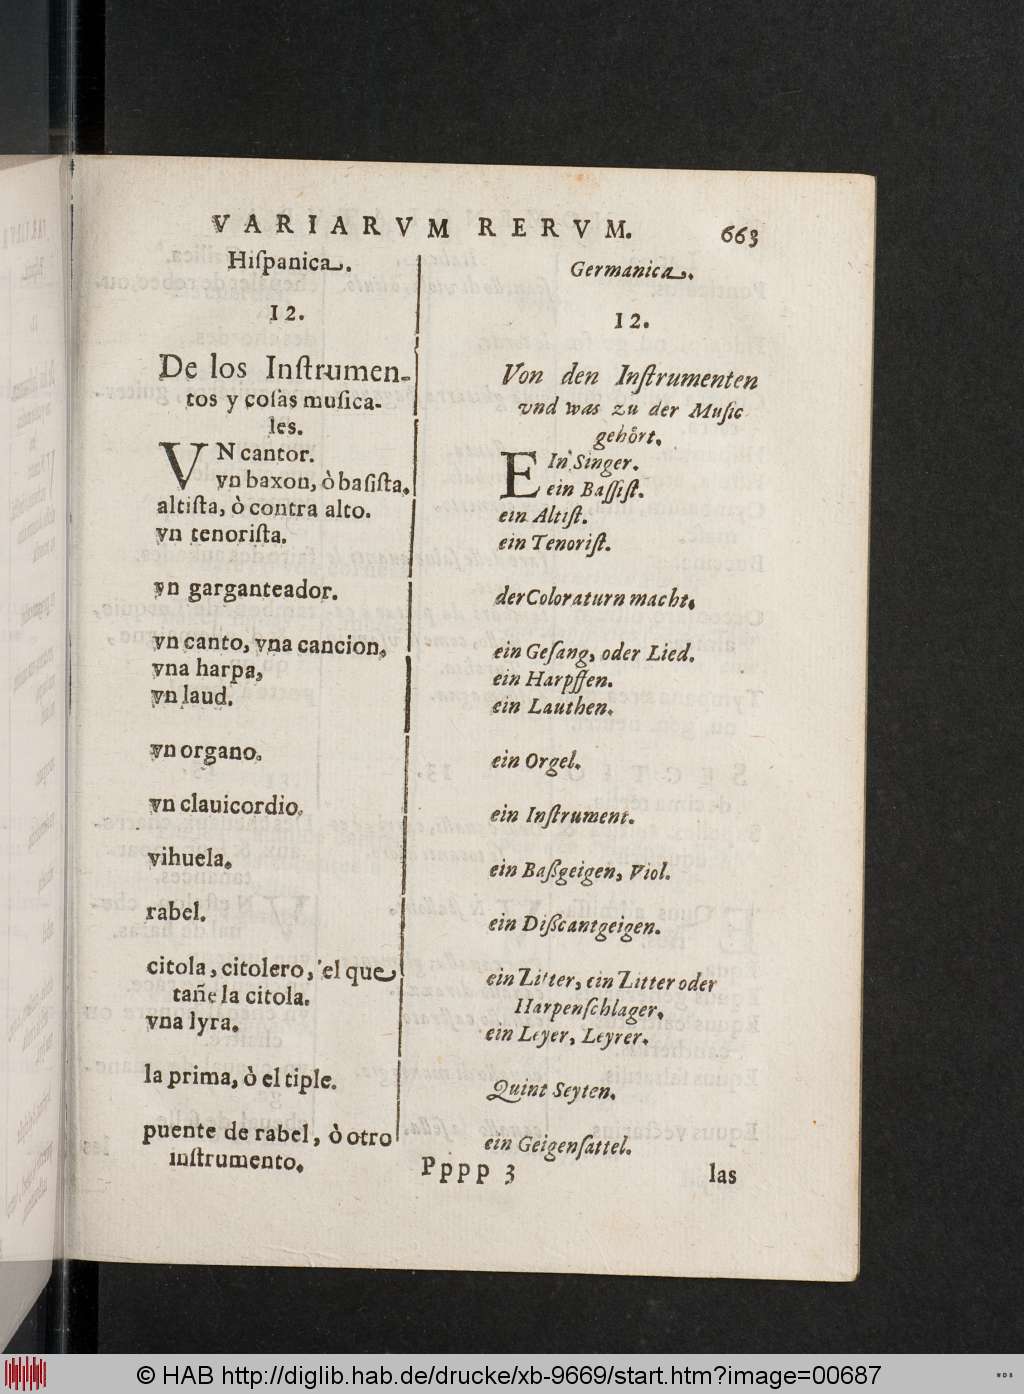 VARIARVM RERVM. 663
Hiſpanica.
12.
De los Inſtrumen-
tos y coſas muſica-
les.
VN cantor.
vn baxon, ò baſiſta.
altiſta, ò contra alto.
vn tenoriſta.
vn garganteador.
vn canto, vna cancion.
vna harpa,
vn laud.
vn organo.
vn clauicordio.
vihuela.
rabel.
citola, citolero, el que
tañe la citola.
vna lyra.
la prima, ò el tiple.
puente de rabel, ò otro
inſtrumento.
Germanica.
12.
Von den Inſtrumenten
vnd was zu der Muſic
gehört.
EIn Singer.
ein Baſſiſt.
ein Altiſt.
ein Tenoriſt.
der Coloraturn macht.
ein Geſang, oder Lied.
ein Harpffen.
ein Lauthen.
ein Orgel.
ein Inſtrument.
ein Baßgeigen, Viol.
ein Dißcantgeigen.
ein Zitter, ein Zitter oder
Harpenſchlager.
ein Leyer, Leyrer.
Quint Seyten.
ein Geigenſattel.
Pppp 3 las
© HAB http://diglib.hab.de/drucke/xb-9669/start.htm?image=00687